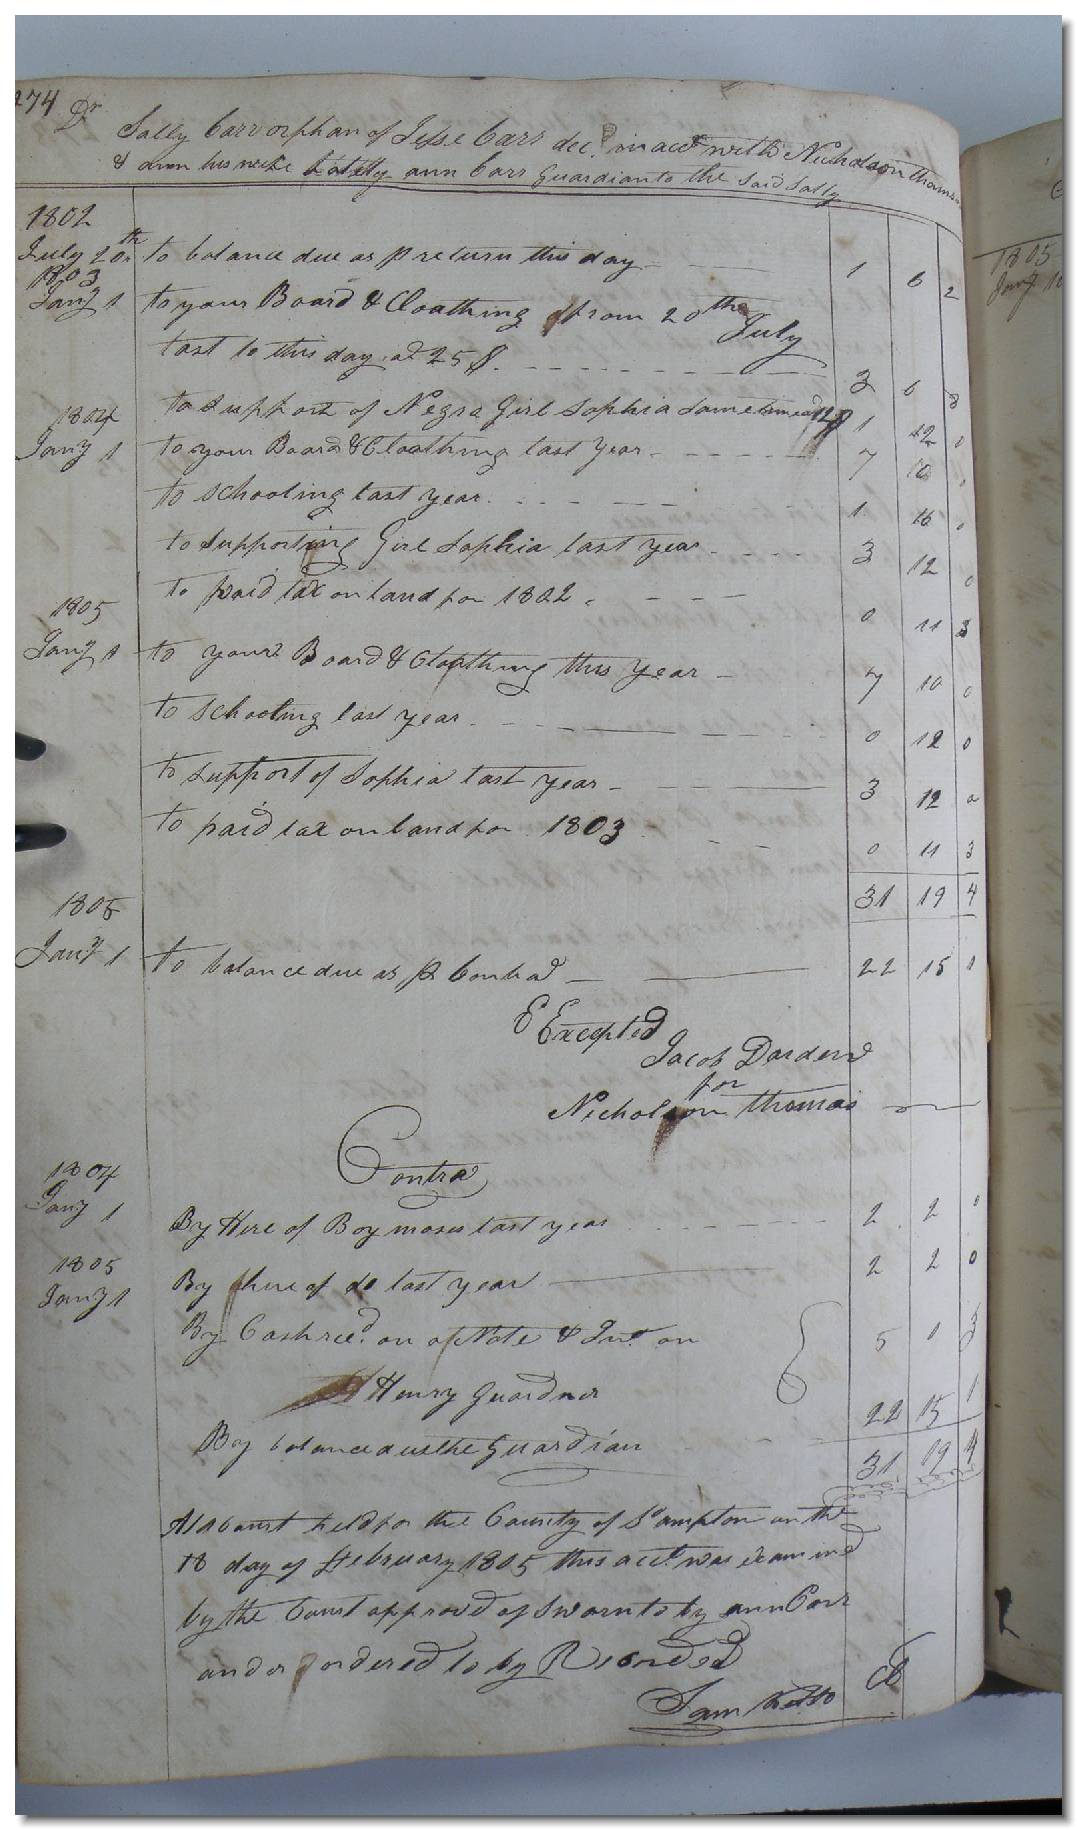 274
Dr Sally Carr orphan of Jesse Carr decd. in acct with Nicholson Thomas
& ann his wife Lately ann Carr Guardian to the Said Sally
1802
July 20th to balance due as p return this day 1 6 2
1803
Jany 1 to your Board & Cloathing from 20th July
last to this day at 25/. 3 6 8
to Support of Negro Girl Sophia Sametime 1 12 0
1804
Jany 1 to your Board & Cloathing last Year 7 10 0
to Schooling last year 1 16 0
to Supporting Girl Sophia last year 3 12 0
to paid tax on land for 1802 0 11 3
1805
Jany 1 to your Board & Cloathing this Year 7 10 0
to Schooling last year 0 12 0
to Support of Sophia last year 3 12 0
to paid tax on land for 1803 0 11 3
31 19 4
1805
Jany 1 to balance due as p Contra 22 15 1
E Excepted
Jacob Darden
for
Nicholson Thomas
Contra
1804
Jany 1 By Hire of Boy moses last year 2 2 0
1805
Jany 1 By hire of do last year 2 2 0
By Cash recd. on a Note & Int. on
Henry Guardner 5 0 3
By balance due the Guardian 22 15 1
31 19 4
At a Court held for the County of S'ampton on the
18 day of February 1805 this acct. was examined
by the Court approvd of Sworn to by ann Carr
and ordered to by Recorded
Sam Kello CC